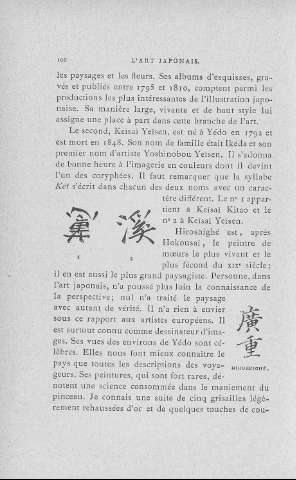 100 L'ART JAPONAIS.
les paysages et les fleurs. Ses albums d'esquisses, gra-
vés et publiés entre 1795 et 1810, comptent parmi les
productions les plus intéressantes de l'illustration japo-
naise. Sa manière large, vivante et de haut style lui
assigne une place à part dans cette branche de l'art.
Le second, Keisaï Yeisen, est né à Yédo en 1792 et
est mort en 1848. Son nom de famille était Ikeda et son
premier nom d'artiste Yoshinobou Yeisen. Il s'adonna
de bonne heure à l'imagerie en couleurs dont il devint
l'un des coryphées. Il faut remarquer que la syllabe
Keï s'écrit dans chacun des deux noms avec un carac-
tère différent. Le nº 1 appar-
tient à Keisaï Kitao et le
nº 2 à Keisaï Yeisen.
溪
1 2
Hiroshighé est, après
Hokousaï, le peintre de
mœurs le plus vivant et le
plus fécond du XIXe siècle;
il en est aussi le plus grand paysagiste. Personne, dans
l'art japonais, n'a poussé plus loin la connaissance de
la perspective; nul n'a traité le paysage
avec autant de vérité. Il n'a rien à envier
sous ce rapport aux artistes européens. Il
est surtout connu comme dessinateur d'ima-
ges. Ses vues des environs de Yédo sont cé-
lèbres. Elles nous font mieux connaître le
pays que toutes les descriptions des voya-
geurs. Ses peintures, qui sont fort rares, dé-
廣重
HIROSHIGHÉ.
notent une science consommée dans le maniement du
pinceau. Je connais une suite de cinq grisailles légè-
rement rehaussées d'or et de quelques touches de cou-